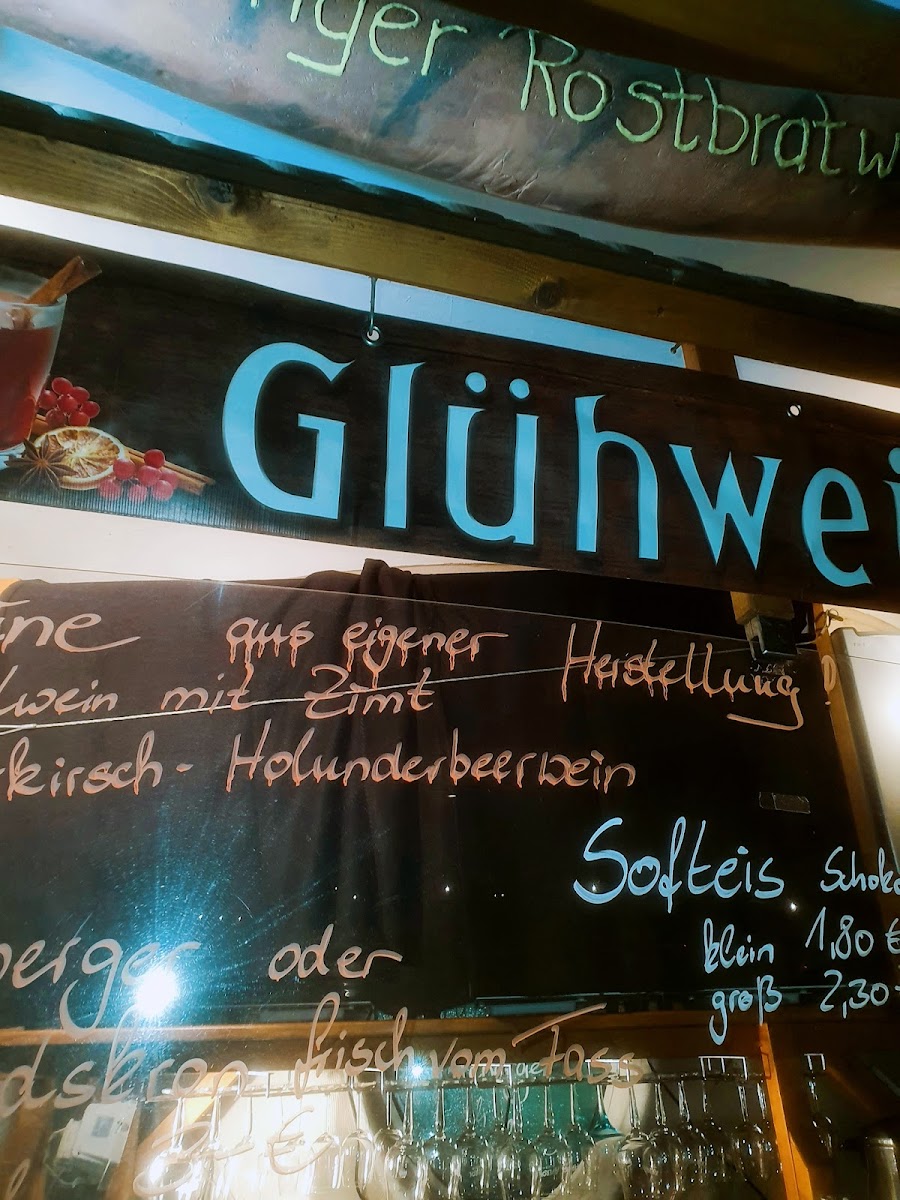 nger Rostbratw
Glühwei
ine aus eigener Herstellung
lwein mit Zimt
rkirsch- Holunderbeerwein
Softeis Schoko
klein 1,80 €
groß 2,30
berger oder
dskron frisch vom Fass